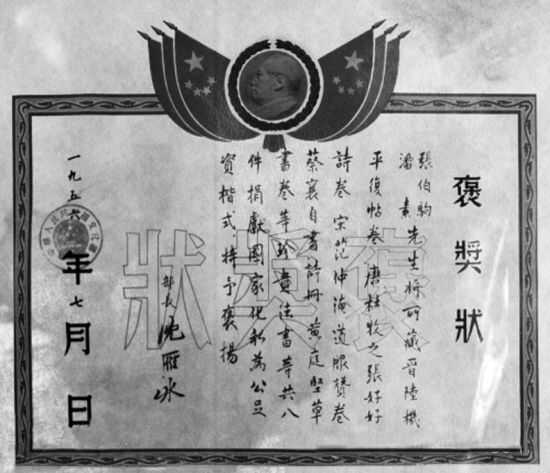 褒獎狀
張伯駒
潘素
先生將所藏晉陸機
平復帖卷唐杜牧之張好好
詩卷宋范仲淹道服贊卷
蔡襄自書詩冊黃庭堅草
書卷等珍貴法書等共八
件捐獻國家化私為公足
資楷式特予褒揚
部長沈雁冰
一九五六年七月日
褒奨狀